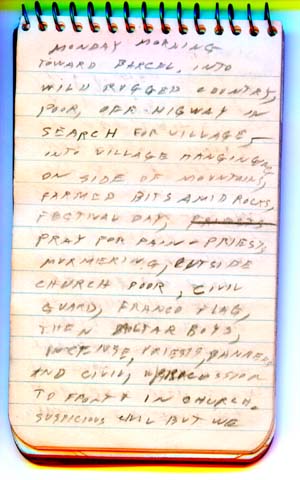 MONDAY MORNING
TOWARD BARCEL. INTO
WILD RUGGED COUNTRY,
POOR, OFF-HIGWAY IN
SEARCH FOR VILLAGE,
INTO VILLAGE HANGING
ON SIDE OF MOUNTAIN,
FARMED BITS AMID ROCKS,
FESTIVAL DAY, PRIESTS
PRAY FOR RAIN - PRIESTS
MURMERING, OUTSIDE
CHURCH DOOR, CIVIL
GUARD, FRANCO FLAG,
THEN ALTAR BOYS,
INCENSE, PRIESTS, BANNERS
AND CIVIL, PROCESSION
TO FRONT IN CHURCH.
SUSPICIOUS CIVIL BUT WE